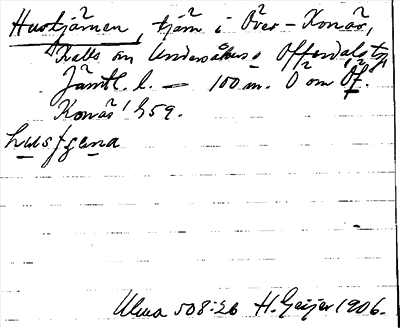 Hustjärnen, tjärn i Över-Konäs,
Kalls sn Undersåkers o Offerdals tg
Jämtl. l. — 100 m. O om Öf.
Konäs 459.
husfjena
Ulma 508:26 H. Geijer 1906.